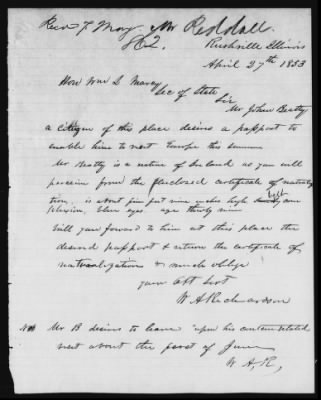 Recd 7 May Mr Reddall.
Rushville Illinois
April 27th 1853
Hon Wm L Marcy
Sec of State
Sir
Mr John Beatty
a citizen of this place desires a passport to
enable him to visit Europe this summer
Mr Beatty is a native of Ireland as you will
perceive from the Enclosed certificate of naturaliza
tion. is about five feet nine inches high com
plexion, blue eyes. age thirty nine
Will you forward to him at this place the
desired passport & return the certificate of
naturalization & much oblige
your obt svt
W A Richardson
Mr B desires to leave upon his contemplated
visit about the first of June
W A, R,